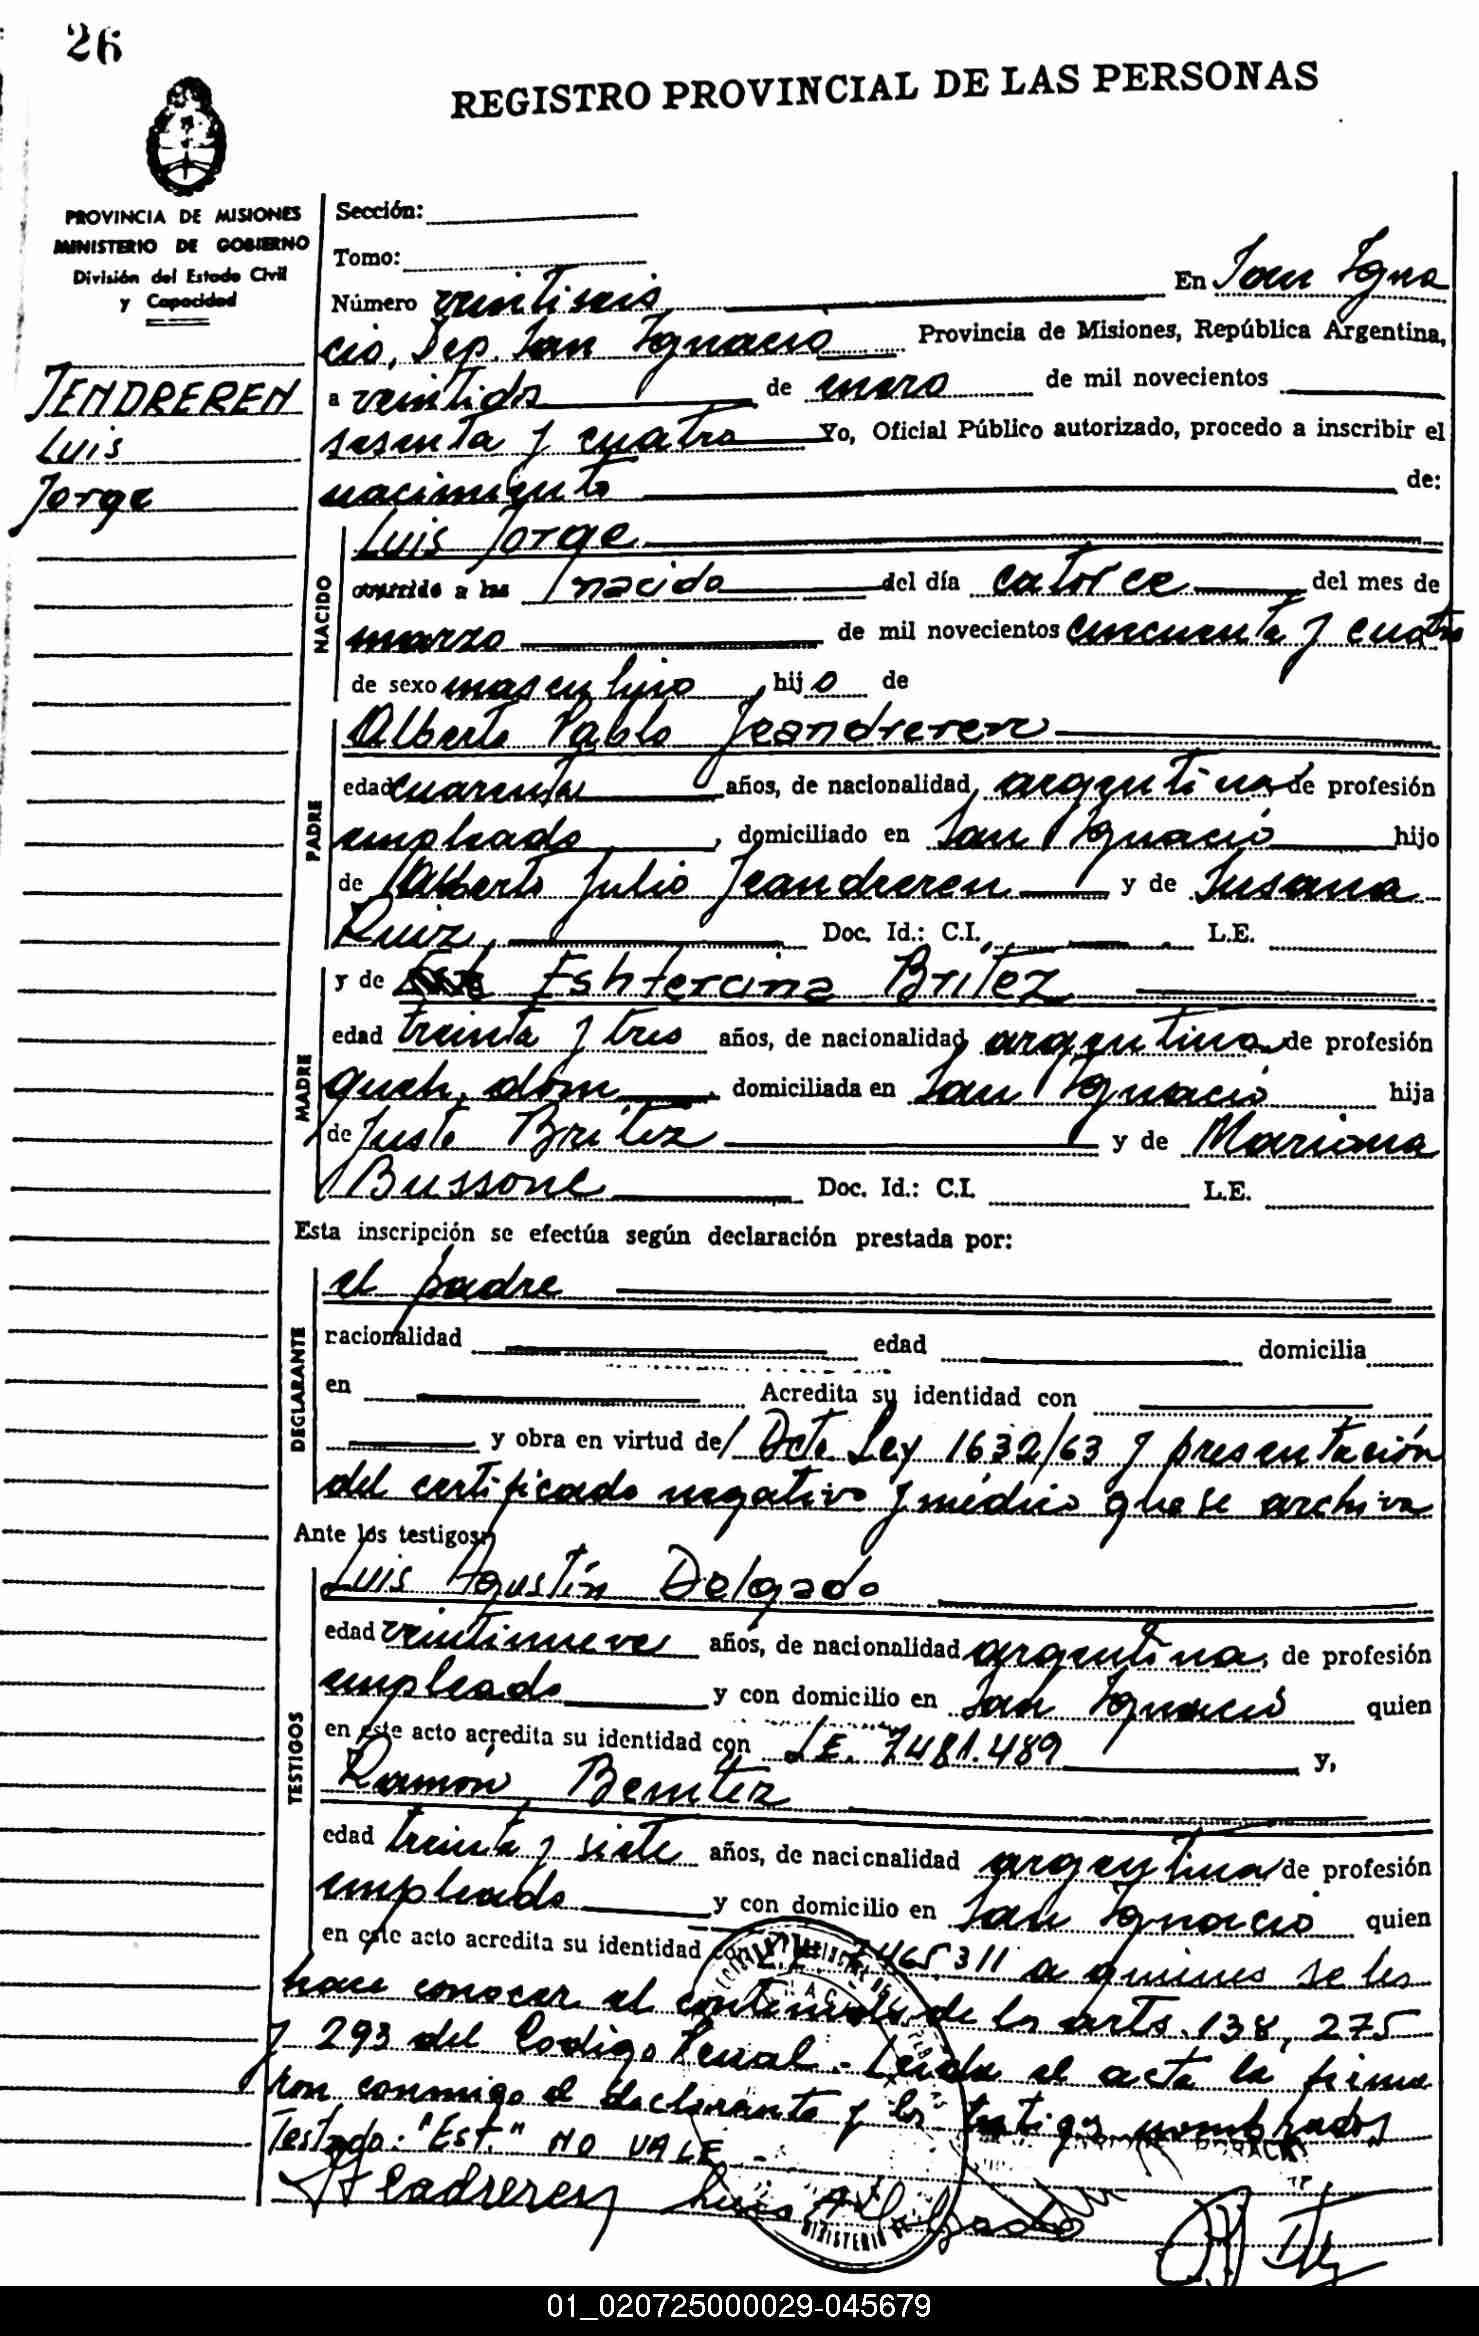 26
REGISTRO PROVINCIAL DE LAS PERSONAS
PROVINCIA DE MISIONES
MINISTERIO DE GOBIERNO
División del Estado Civil
y Capacidad
JENDREREN
Luis
Jorge
Sección:
Tomo:
Número veintiseis En San Igna
cio, Dep. San Ignacio Provincia de Misiones, República Argentina,
a veintidos de enero de mil novecientos
sesenta y cuatro Yo, Oficial Público autorizado, procedo a inscribir el
nacimiento de:
NACIDO
Luis Jorge
ocurrido a las nacido del día catorce del mes de
marzo de mil novecientos cincuenta y cuatro
de sexo masculino, hijo de
PADRE
Alberto Pablo Jeandreren
edad cuarenta años, de nacionalidad argentina de profesión
empleado, domiciliado en San Ignacio hijo
de Alberto Julio Jeandreren y de Susana
Ruiz, Doc. Id.: C.I. L.E.
MADRE
y de Eshtercina Britez
edad treinta y tres años, de nacionalidad argentina de profesión
queh. dom, domiciliada en San Ignacio hija
de Justo Britez y de Mariana
Bussone Doc. Id.: C.I. L.E.
Esta inscripción se efectúa según declaración prestada por:
DECLARANTE
el padre
nacionalidad edad domicilia
en Acredita su identidad con
y obra en virtud de Dcto Ley 1632/63 y presentación
del certificado negativo y médico que se archiva
Ante los testigos:
TESTIGOS
Luis Agustín Delgado
edad veintinueve años, de nacionalidad argentina, de profesión
empleado y con domicilio en San Ignacio quien
en este acto acredita su identidad con L.E. 7481.489 y,
Ramón Benitez
edad treinta y siete años, de nacionalidad argentina de profesión
empleado y con domicilio en San Ignacio quien
en este acto acredita su identidad con 7465.311 a quienes se les
hace conocer el contenido de los arts. 138, 275
y 293 del Codigo Penal.- Leida el acta la firma
ron conmigo el declarante y los testigos nombrados
Testado: "Est." NO VALE.-
Luis A Delgado
MINISTERIO
01_020725000029-045679